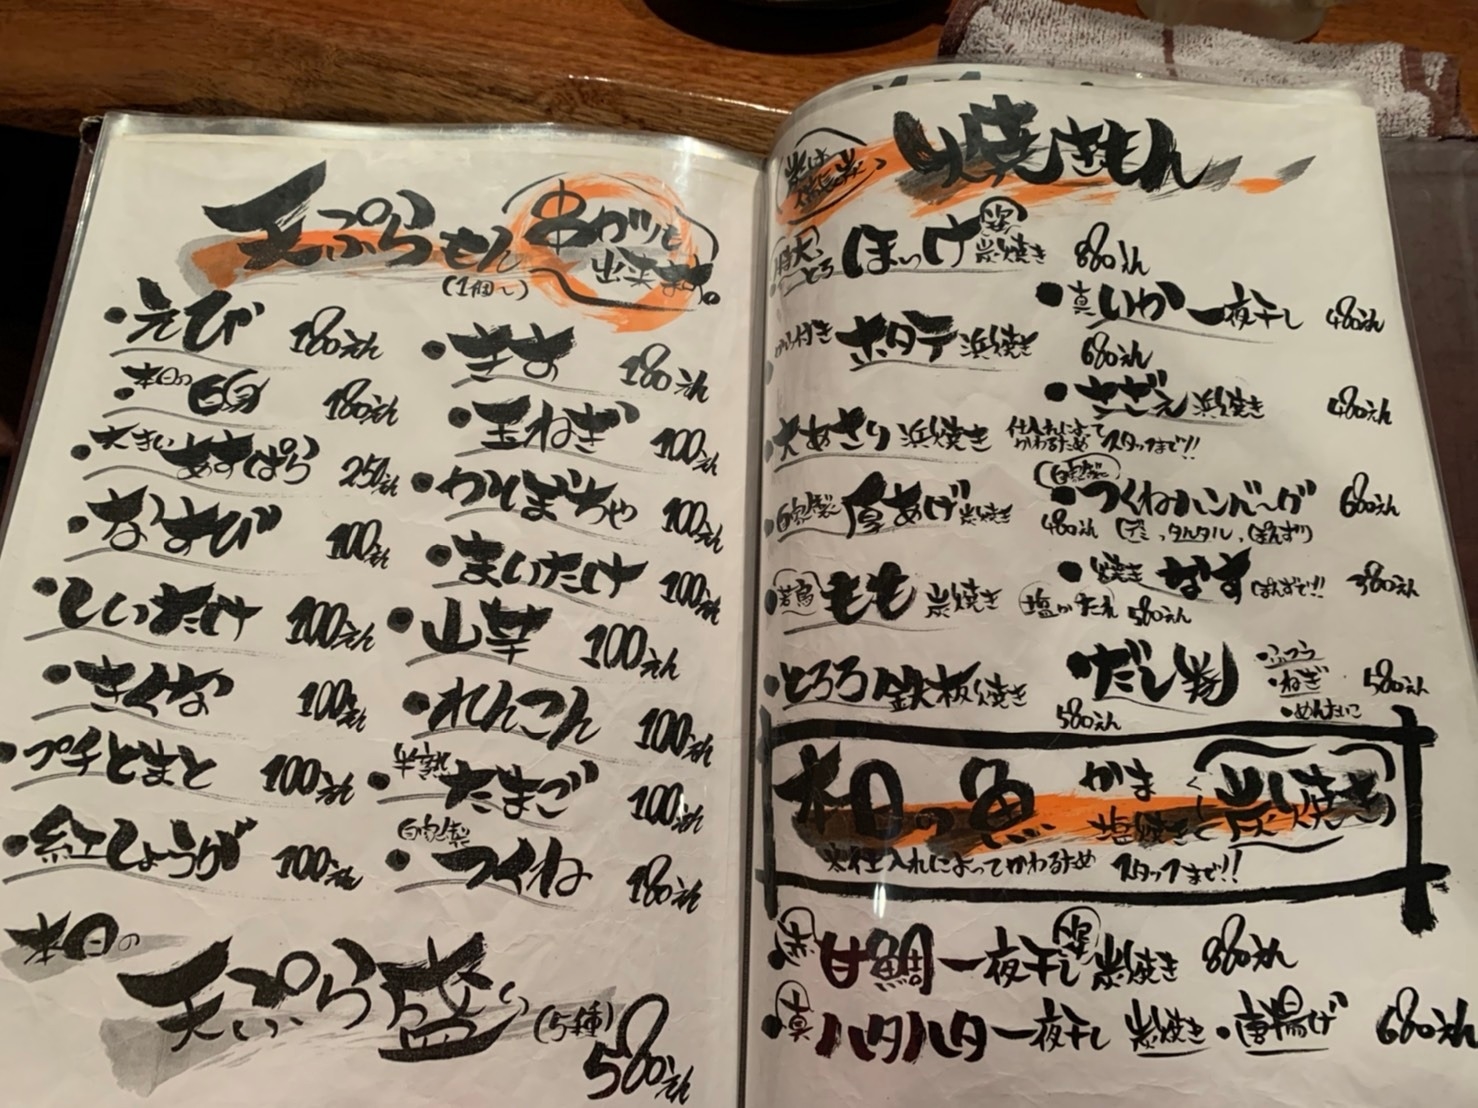 天ぷらもん
(1個〜)
串カツも
出来ます。
・えび 180えん
・本日の白身 180えん
・大きいあすぱら 250えん
・なすび 100えん
・しいたけ 100えん
・きくな 100えん
・プチとまと 100えん
・紅しょうが 100えん
・きす 180えん
・玉ねぎ 100えん
・かぼちゃ 100えん
・まいたけ 100えん
・山芋 100えん
・れんこん 100えん
・半熟たまご 100えん
・自家製つくね 180えん
本日の
天ぷら盛り(5種)
580えん
炭は
焼きもん
特大とろほっけ 姿 炭焼き 880えん
・真いか一夜干し 480えん
から付きホタテ浜焼き 680えん
・さざえ浜焼き 480えん
・大あさり浜焼き 仕入れによってかわるためスタッフまで!!
・自家製厚あげ炭焼き 480えん
・自家製つくねハンバーグ 680えん
(デミ、タルタル、ぽんず)
・若鳥もも炭焼き 塩かたれ 580えん
・焼きなす ぽんずで!! 380えん
・とろろ鉄板焼き 580えん
だし巻 ・ふつう ・ねぎ ・めんたいこ 580えん
本日の魚 かま 塩焼き 炭焼き
※仕入れによってかわるため スタッフまで!!
甘鯛一夜干し 姿 炭焼き 880えん
・真ハタハタ一夜干し 炭焼き・唐揚げ 680えん